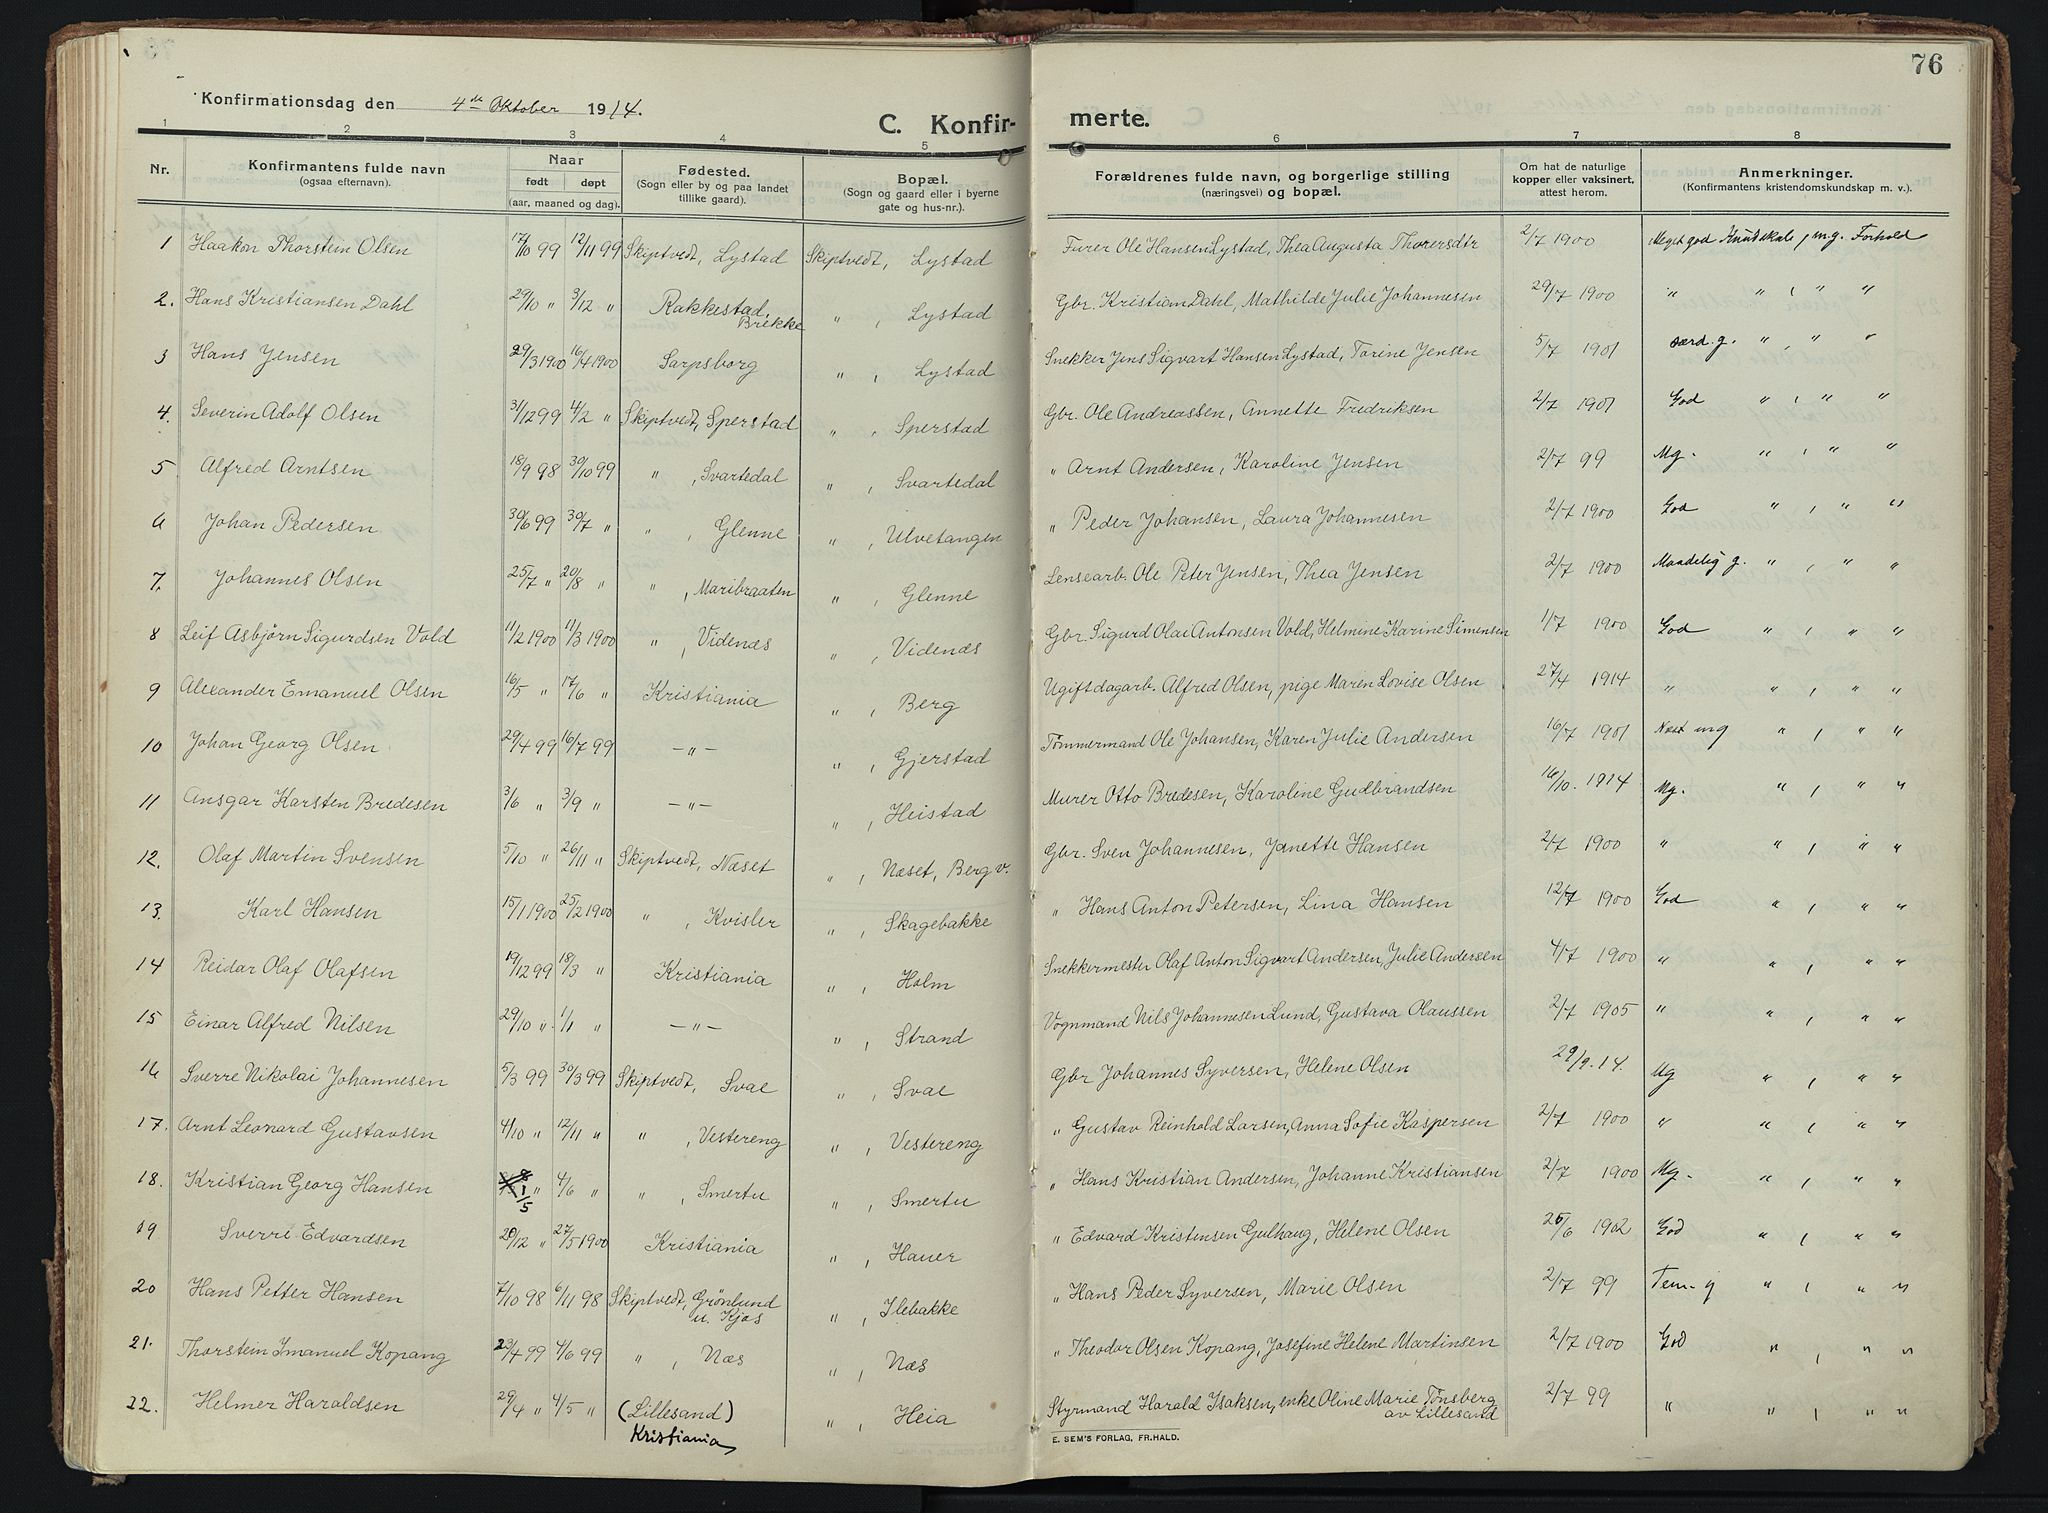 76
Konfirmationsdag den 4de Oktober 1914.
C. Konfirmerte.
1 2 3 4 5 6 7 8
Nr. Konfirmantens fulde navn (ogsaa efternavn). Naar født døpt (aar, maaned og dag). Fødested. (Sogn eller by og paa landet tillike gaard). Bopæl. (Sogn og gaard eller i byerne gate og hus-nr.). Forældrenes fulde navn, og borgerlige stilling (næringsvei) og bopæl. Om hat de naturlige kopper eller vaksinert, attest herom. Anmerkninger. (Konfirmantens kristendomskundskap m. v.).
1 Haakon Thorstein Olsen 17/10 99 12/11 99 Skiptvedt, Lystad Skiptvedt, Lystad Furer Ole Hansen Lystad, Thea Augusta Thorersdtr 2/7 1900 Meget god Kundskab, m.g. Forhold
2. Hans Kristiansen Dahl 29/10 " 3/12 " Rakkestad, Brekke " , Lystad Gbr. Kristian Dahl, Mathilde Julie Johannesen 29/7 1900 " " , " "
3 Hans Jensen 29/3 1900 16/4 1900 Sarpsborg " , Lystad Snekker Jens Sigvart Hansen Lystad, Torine Jensen 5/7 1901 særd. g. " , " "
4. Severin Adolf Olsen 31/12 99 4/2 " Skiptvedt, Sperstad " , Sperstad Gbr. Ole Andreassen, Annette Fredriksen 2/7 1901 God " , " "
5 Alfred Arntsen 18/9 98 30/10 99 " , Svartedal " , Svartedal " Arnt Andersen, Karoline Jensen 2/7 99 Mg. " , " "
6 Johan Pedersen 30/6 99 30/7 " " , Glenne " , Ulvetangen " Peder Johansen, Laura Johannesen 2/7 1900 God " , " "
7. Johannes Olsen 25/7 " 20/8 " " , Maribraaten " , Glenne Lensearb. Ole Peter Jensen, Thea Jensen 2/7 1900 Maadelig g. " , " "
8 Leif Asbjörn Sigurdsen Vold 11/2 1900 11/3 1900 " , Videnæs " , Videnæs Gbr. Sigurd Olai Antonsen Vold, Helmine Karine Simensen 1/7 1900 God " , " "
9 Alexander Emanuel Olsen 16/5 " 17/6 " Kristiania " , Berg Ugift dagarb. Alfred Olsen, pige Maren Lovise Olsen 27/4 1914 " " , " "
10 Johan Georg Olsen 29/4 99 16/7 99 — " — " , Gjerstad Tømmermand Ole Johansen, Karen Julie Andersen 16/7 1901 Næst mg " , " "
11 Ansgar Karsten Bredesen 3/6 " 3/9 " — " — " , Heistad Murer Otto Bredesen, Karoline Gudbrandsen 16/10. 1914 Mg. " , " "
12. Olaf Martin Svensen 5/10 " 26/11 " Skiptvedt, Næset " , Næset, Berg v. Gbr. Sven Johannesen, Janette Hansen 2/7 1900 " " , " "
13. Karl Hansen 15/1 1900 25/2 1900 " , Kvisler " , Skagebakke " Hans Anton Petersen, Lina Hansen 12/7 1900 God " , " "
14 Reidar Olaf Olafsen 19/12 99 18/3 " Kristiania " , Holm Snekkermester Olaf Anton Sigvart Andersen, Julie Andersen 4/7 1900 " " , " "
15 Einar Alfred Nilsen 29/10 " 1/1 " — " — " , Strand Vognmand Nils Johannesen Lund, Gustava Olaussen 2/7 1905 " " , " "
16 Sverre Nikolai Johannesen 5/3 99 30/3 99 Skiptvedt, Svae " , Svae Gbr Johannes Syversen, Helene Olsen 29/9. 14. Mg " , " "
17. Arnt Leonard Gustavsen 4/10 " 12/11 " " , Vestereng " , Vestereng " Gustav Reinhold Larsen, Anna Sofie Kaspersen 2/7 1900 " " , " "
18. Kristian Georg Hansen 1/5 " 4/6 " " , Smertu " , Smertu " Hans Kristian Andersen, Johanne Kristiansen 2/7 1900 Mg. " , " "
19 Sverre Edvardsen 20/12 " 27/5 1900 Kristiania " , Hauer " Edvard Kristensen Gulhaug, Helene Olsen 25/6 1902 God " , " "
20 Hans Petter Hansen 7/10 98 6/11 98 Skiptvedt, Grönlund u. Kjos " , Ilebakke " Hans Peder Syversen, Marie Olsen 2/7 99 Tem. g " , " "
21. Thorstein Imanuel Kopang 23/4 99 4/6 99 " , Næs " , Næs " Theodor Olsen Kopang, Josefine Helene Martinsen 2/7 1900 God " , " "
22. Helmer Haraldsen 29/4 " 4/5 " (Lillesand) Kristiania " , Heia Styrmand Harald Isaksen, enke Oline Marie Tønsberg av Lillesand 2/7 99 " " , " "
E. SEM'S FORLAG, FR.HALD.